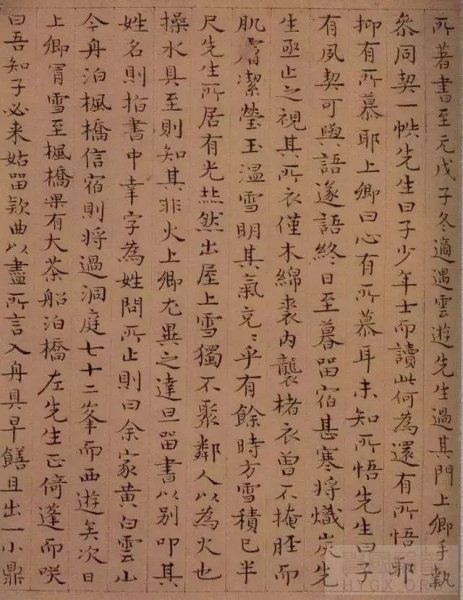 所著書至元戊子冬適遇雲遊先生過其門上卿手執
叅同契一帙先生曰子少年士而讀此何為還有所悟耶
抑有所慕耶上卿曰心有所慕耳未知所悟先生曰子
有夙契可與語遂語終日至暮畱宿甚寒將熾炭先
生亟止之視其所衣僅木綿裘內襲楮衣曾不掩脛而
肌膚潔瑩玉溫雪明其氣充〻乎有餘時方雪積已半
尺先生所居有光𧹞然出屋上雪獨不聚鄰人以為火也
操水具至則知其非火上卿尤異之達旦畱書以別叩其
姓名則指書中幸字為姓問所止則曰余家黃白雲山
今舟泊楓橋信宿則將過洞庭七十二峯而西遊矣次日
上卿冐雪至楓橋果有大茶船泊橋左先生正倚蓬而咲
曰吾知子必来姑畱欵曲以盡所言入舟具早饍且出一小鼎